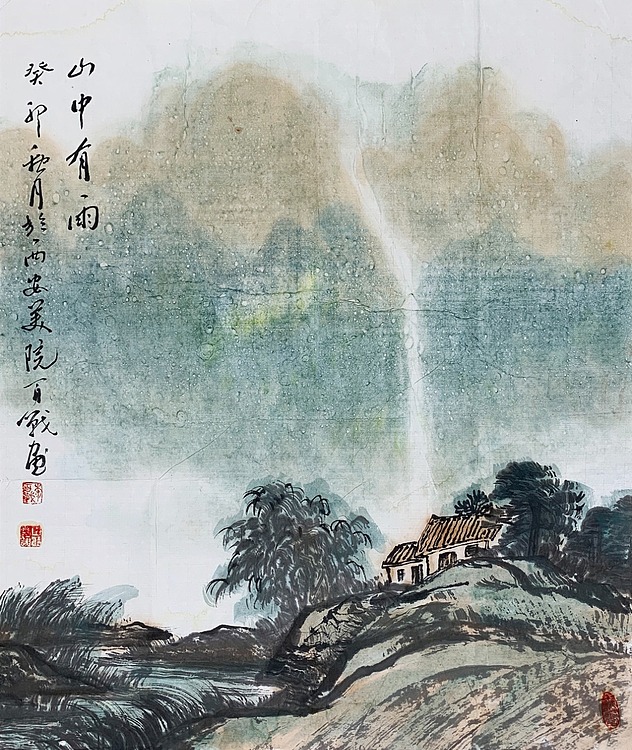 山中有雨
癸卯秋月於西安美院百戰画